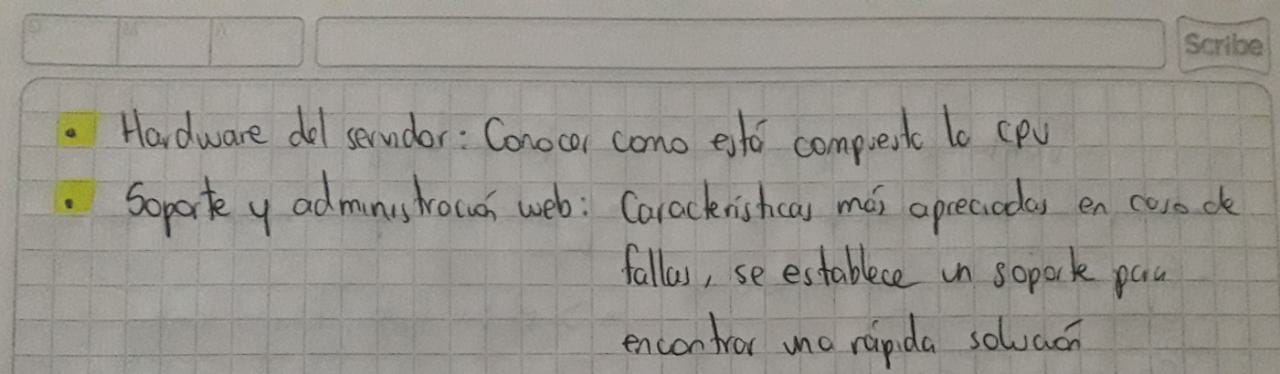 Scribe
• Hardware del servidor: Conocer como está compuesta la CPU
• Soporte y administración web: Características más apreciadas en caso de
fallas, se establece un soporte para
encontrar una rápida solución